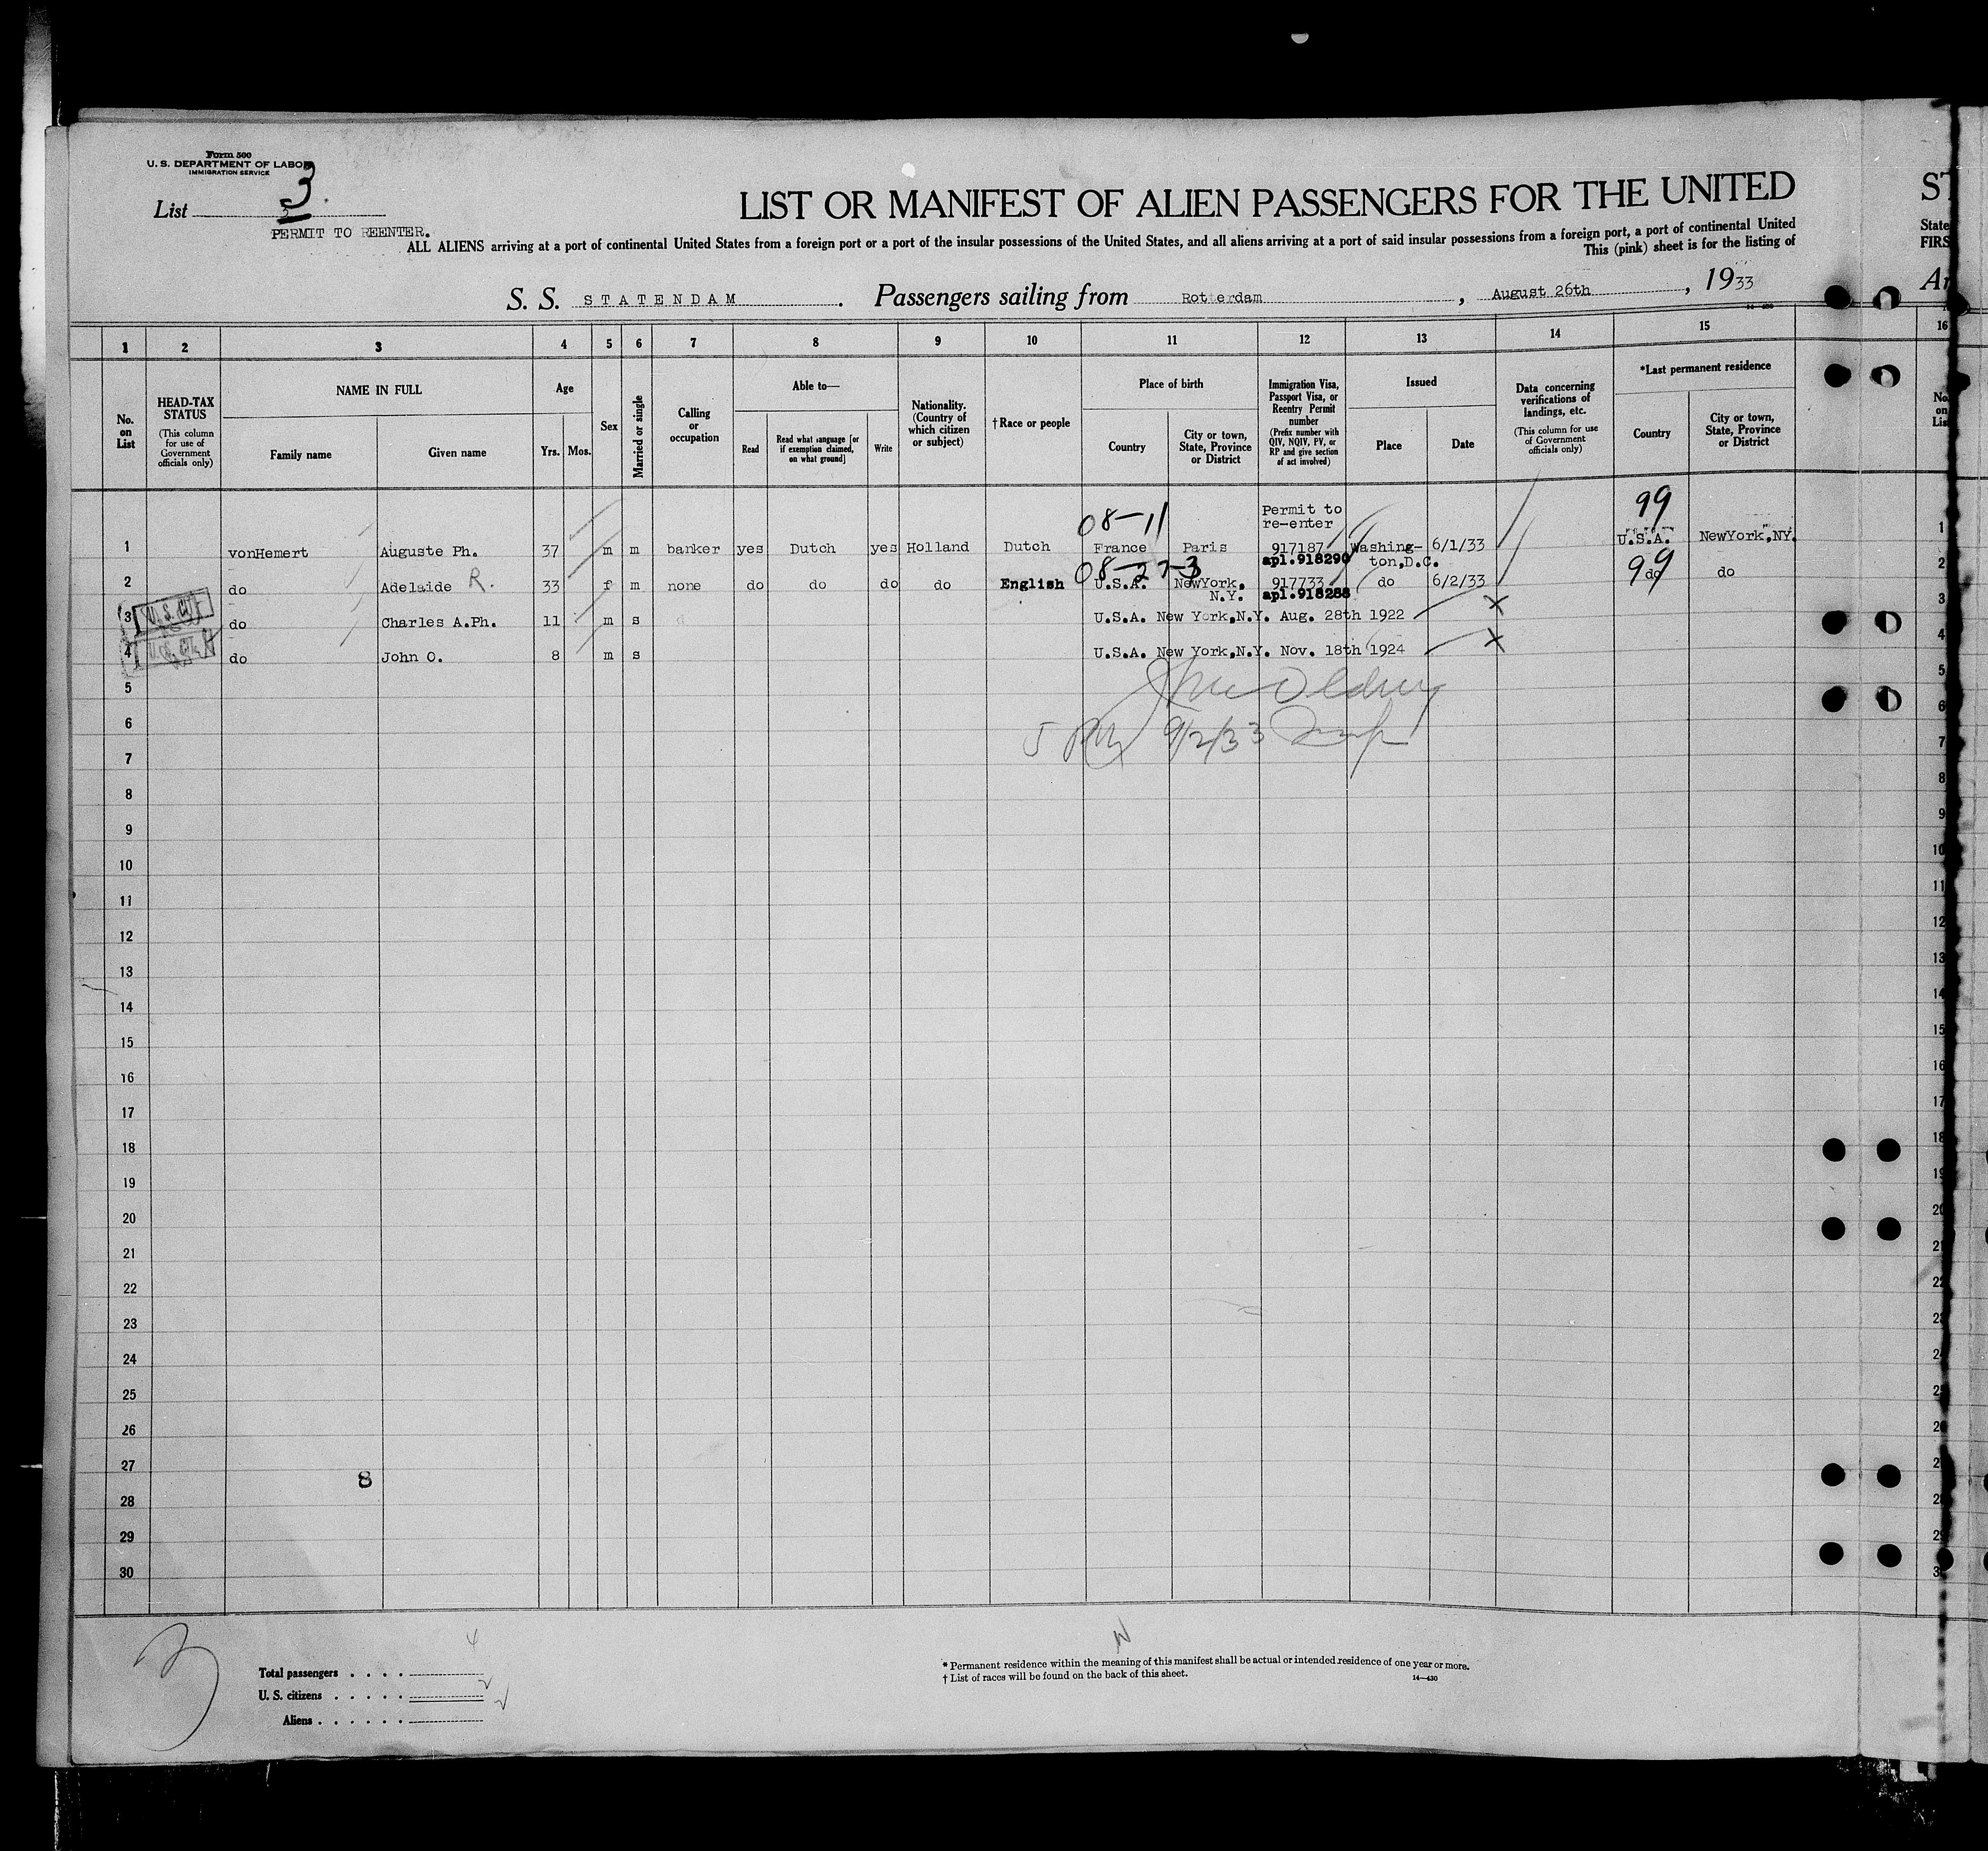 Form 500
U. S. DEPARTMENT OF LABOR
IMMIGRATION SERVICE
List 3
3.
PERMIT TO REENTER.
LIST OR MANIFEST OF ALIEN PASSENGERS FOR THE UNITED
ST
ALL ALIENS arriving at a port of continental United States from a foreign port or a port of the insular possessions of the United States, and all aliens arriving at a port of said insular possessions from a foreign port, a port of continental United
State
This (pink) sheet is for the listing of
FIRS
S. S. STATENDAM. Passengers sailing from Rotterdam, August 26th, 1933
Ar
1 2 3 4 5 6 7 8 9 10 11 12 13 14 15 16
No. on List
HEAD-TAX STATUS
(This column for use of Government officials only)
NAME IN FULL
Family name
Given name
Age
Yrs. Mos.
Sex
Married or single
Calling or occupation
Able to—
Read
Read what language [or if exemption claimed, on what ground]
Write
Nationality. (Country of which citizen or subject)
†Race or people
Place of birth
Country
City or town, State, Province or District
Immigration Visa, Passport Visa, or Reentry Permit number
(Prefix number with QIV, NQIV, PV, or RP and give section of act involved)
Issued
Place
Date
Data concerning verifications of landings, etc.
(This column for use of Government officials only)
*Last permanent residence
Country
City or town, State, Province or District
No. on List
08-11 Permit to re-enter 99
1 vonHemert Auguste Ph. 37 m m banker yes Dutch yes Holland Dutch France Paris 917187 Washington, D.C. 6/1/33 U.S.A. NewYork,NY. 1
apl.918290
08-27-3 99
2 do Adelaide R. 33 f m none do do do do English U.S.A. NewYork, N.Y. 917733 do 6/2/33 do do 2
apl.918288
3 U.S. CIT. do Charles A.Ph. 11 m s U.S.A. New York,N.Y. Aug. 28th 1922 x 3
4 U.S. CIT. do John O. 8 m s U.S.A. New York,N.Y. Nov. 18th 1924 x 4
5 5
6 9/2/33 6
7 7
8 8
9 9
10 10
11 11
12 12
13 13
14 14
15 15
16 16
17 17
18 18
19 19
20 20
21 21
22 22
23 23
24 24
25 25
26 26
27 8 27
28 28
29 29
30 30
3
Total passengers . . . . 4
U. S. citizens . . . . . 2
Aliens . . . . . . 2
N
* Permanent residence within the meaning of this manifest shall be actual or intended residence of one year or more.
† List of races will be found on the back of this sheet.
14—430